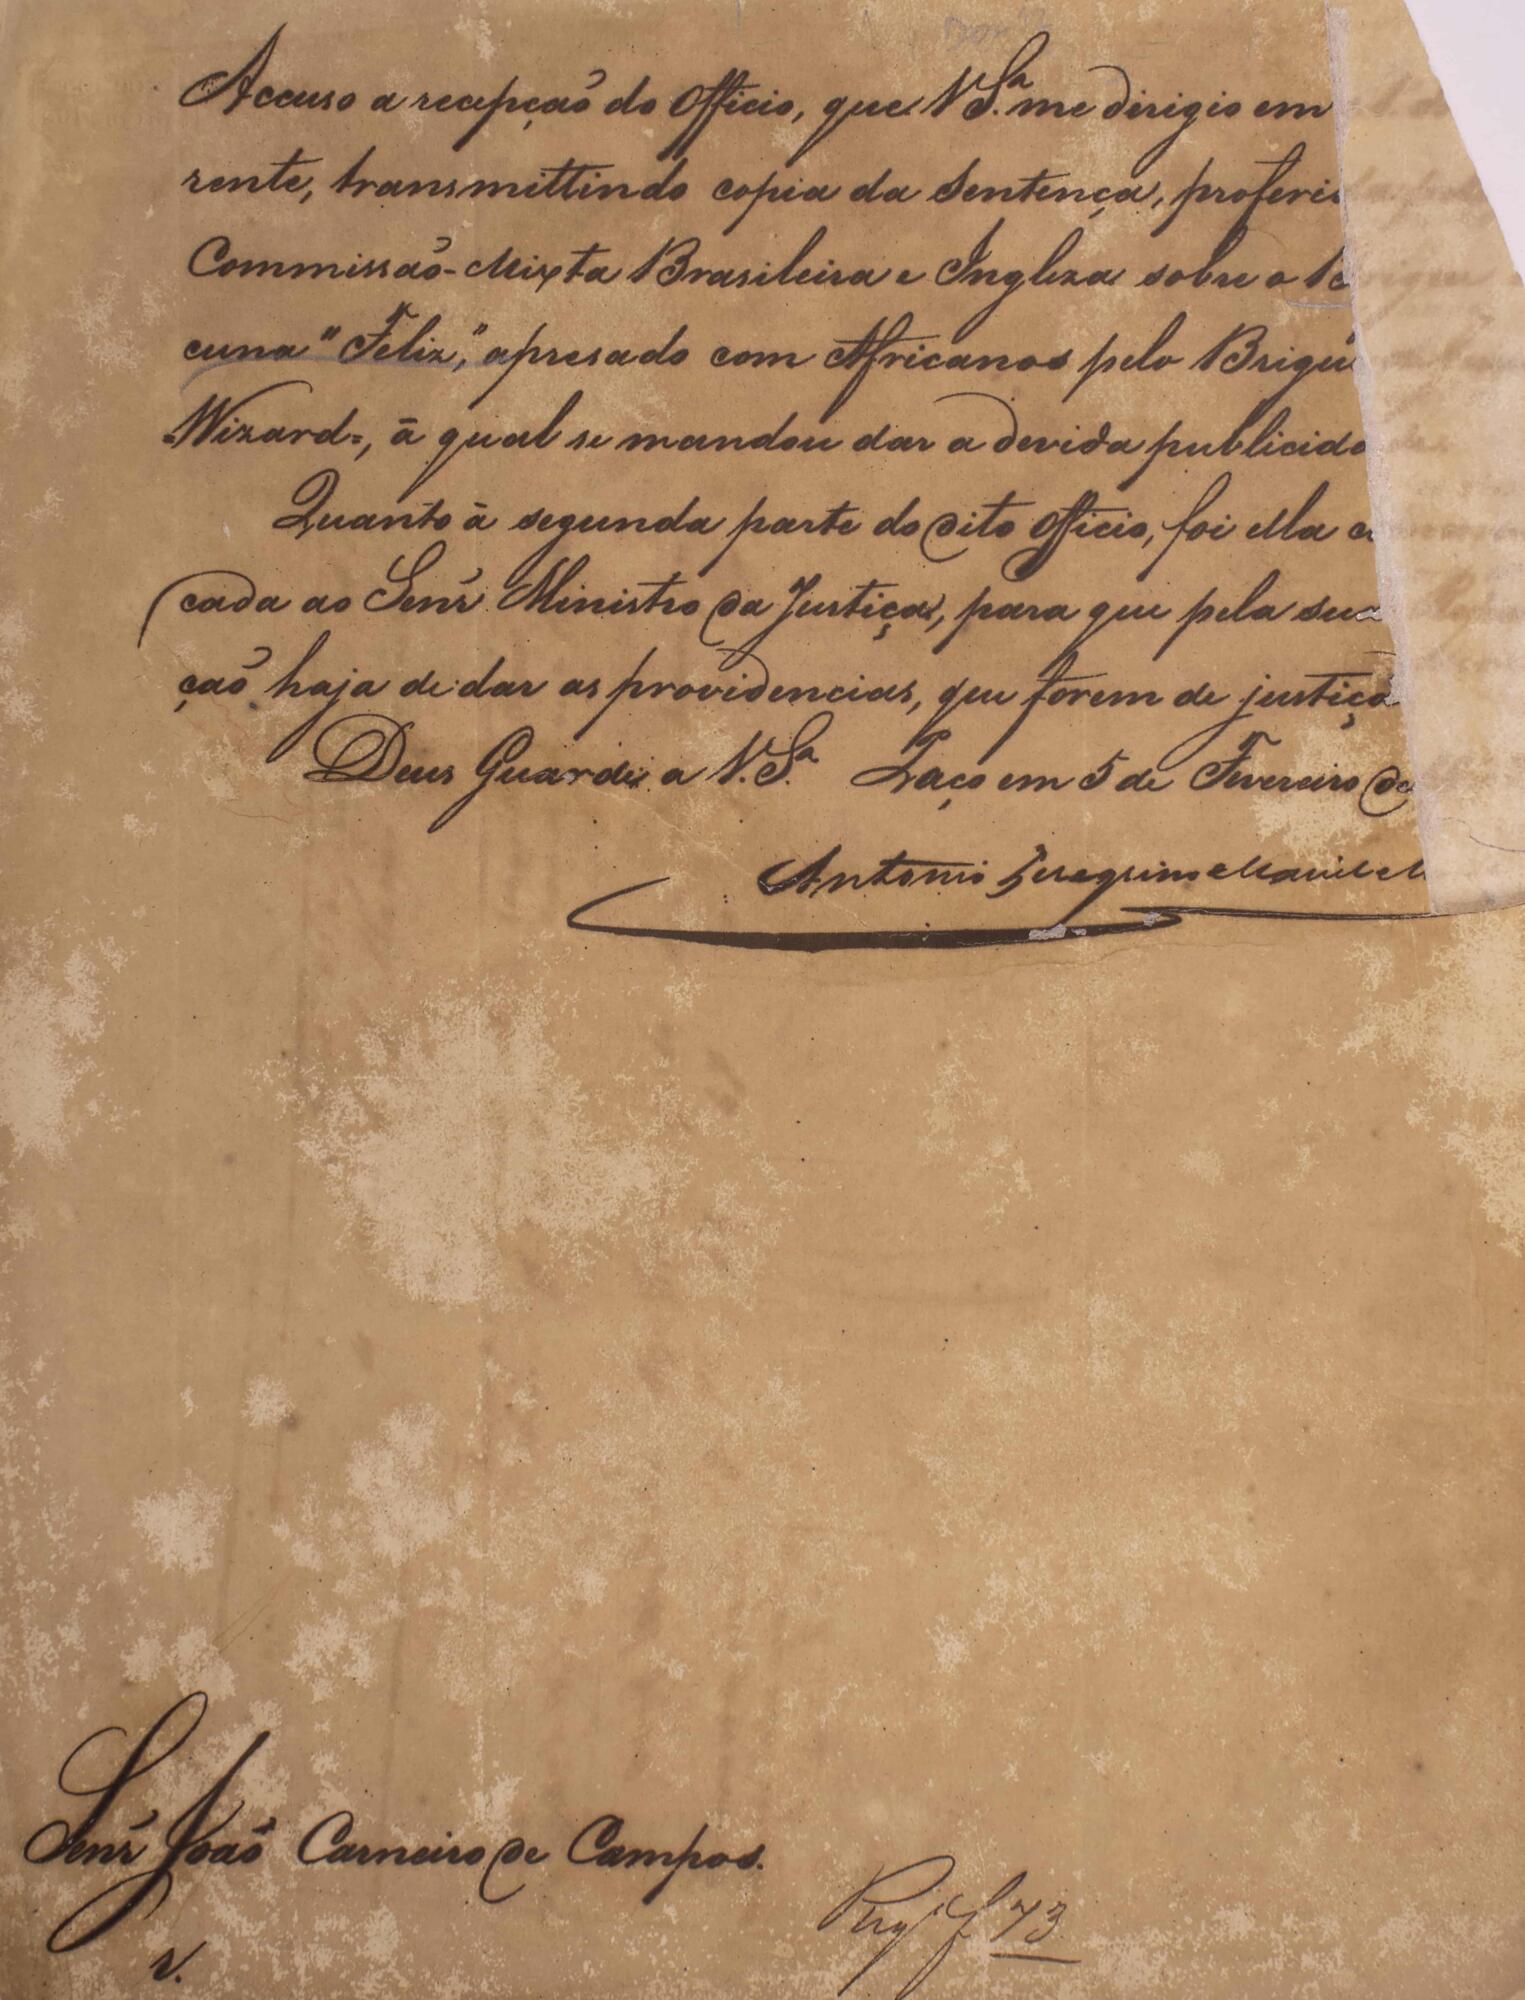 Accuso a recepção do Officio, que V. S.ª me dirigio em
rente, transmittindo copia da Sentença, proferi
Commissaõ-Mixta Brasileira e Ingleza sobre o
cuna "Feliz", apresado com Africanos pelo Brigu
=Wizard=, á qual se mandou dar a devida publicida
Quanto á segunda parte do dito Officio, foi ella
cada ao Senr. Ministro da Justiça, para que pela sua
çaõ haja de dar as providencias, que forem de justiça
Deus Guarde a V. S.ª Paço em 5 de Fevereiro de
Antonio Peregrino Maciel M
Senr. Joaõ Carneiro de Campos.
Reg. f 73